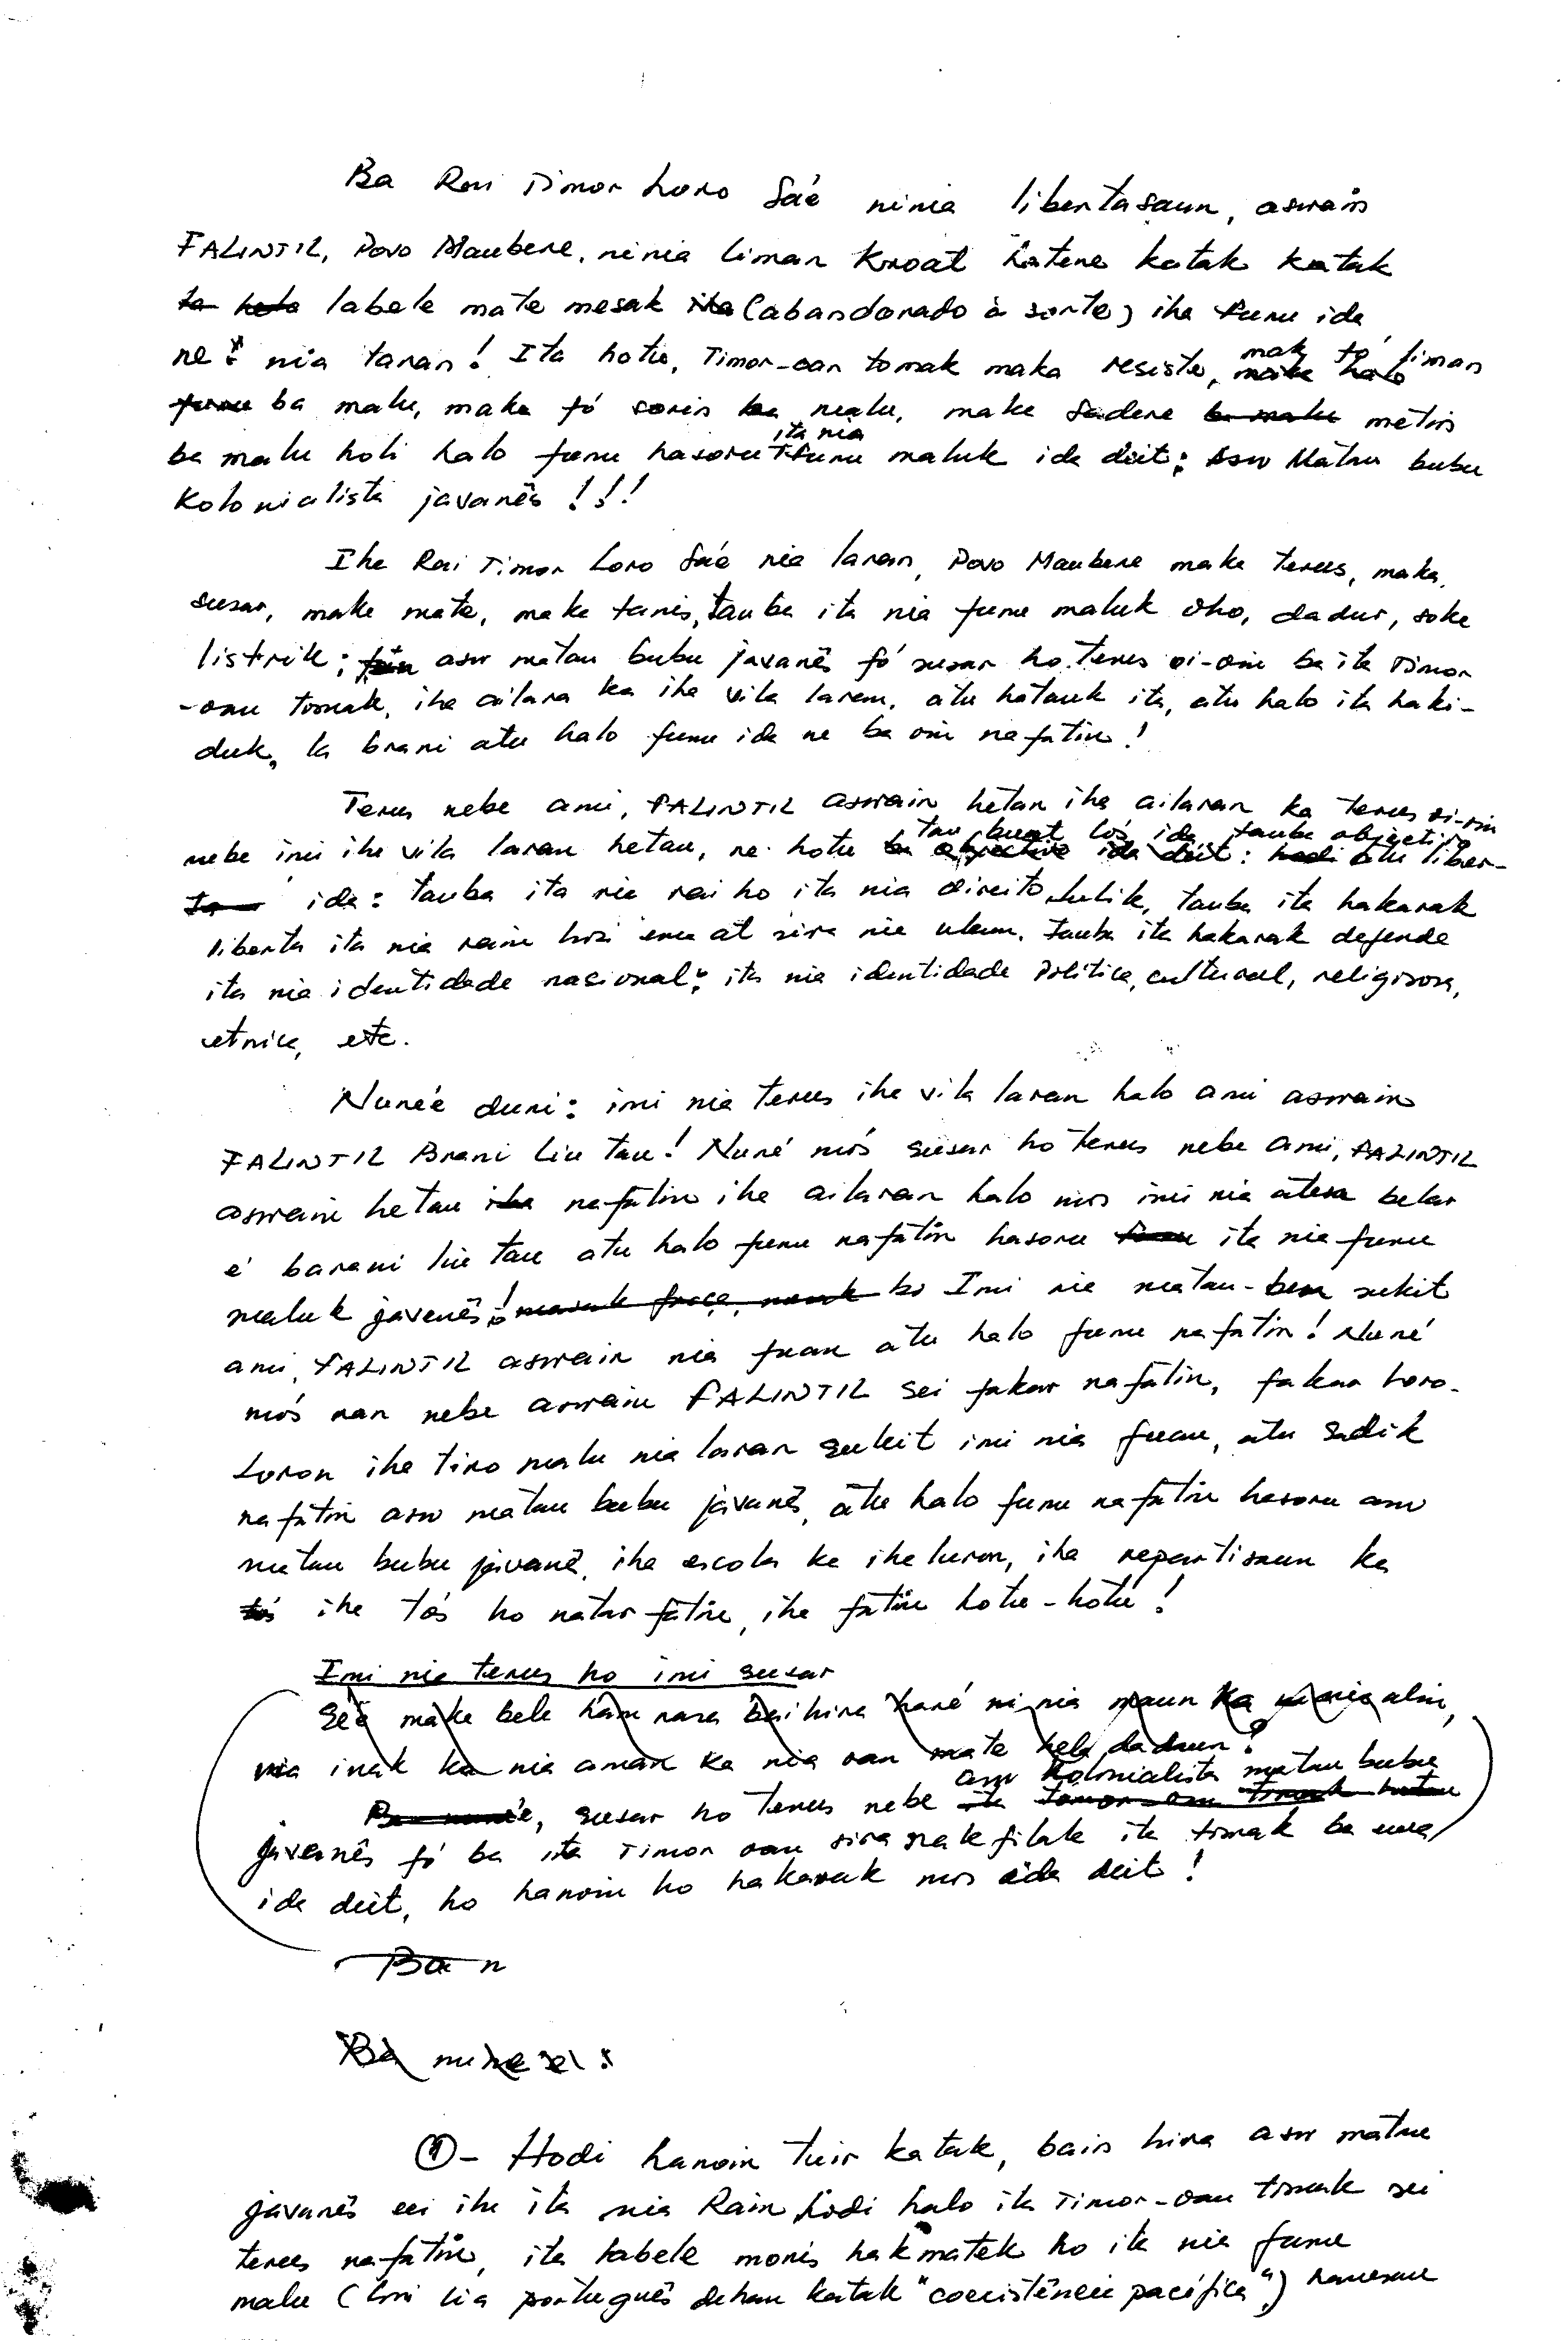 Ba Rai Timor Loro Sáe ninia libertasaun, aswain
FALINTIL, Povo Maubere, ninia liman kroat hatene katak katak
labele mate mesak (abandonado à sorte) ihe funu ida
ne'e nia laran! Ita hotu, Timor-oan tomak maka resiste, mak fó liman
ba malu, maka fó sorin ba malu, maka sadere metin
ba malu hodi halo funu hasoru ita nia funu maluk ida deit: asu Matau bubu
kolonialista javanês!!!
Ihe Rai Timor Loro Sáe nia laran, Povo Maubere maka terus, maka
susar, maka mate, maka tanis, tauba ita nia funu maluk oho, dadur, soke
listrik; asu matau bubu javanês fó susar ho terus oi-oin ba ita Timor
-oan tomak, ihe ailara ka ihe vila laran, atu hatauk ita, atu halo ita haki-
duk, la brani atu halo funu ida ne ba oin nafatin!
Terus nebe ami, FALINTIL aswain hetan ihe ailaran ka terus oi-oin
nebe imi ihe vila laran hetan, ne hotu tau buat los ida, tauba objectivo
ida: tauba ita nia rai ho ita nia direito lulik, tauba ita hakarak
liberta ita nia rain hosi ema at sira nia ukun, tauba ita hakarak defende
ita nia identidade nasional: ita nia identidade politica, cultural, religiosa,
etnica, etc.
Nune'e duni: imi nia terus ihe vila laran halo ami aswain
FALINTIL Brani liu tau! Nuné mós susar ho terus nebe ami, FALINTIL
aswain hetan nafatin ihe ailaran halo mos imi nia aten belar
é barani liu tau atu halo funu nafatin hasoru ita nia funu
maluk javanês! Imi nia matan-ben sukit
ami, FALINTIL aswain nia fuan atu halo funu nafatin! Nuné
mós ran nebe aswain FALINTIL sei fakar nafatin, fakar loro-
loron ihe tiro malu nia laran sukit imi nia fuan, atu sadik
nafatin asu matau bubu javanês, atu halo funu nafatin hasoru asu
matau bubu javanê, ihe escola ka ihe luron, ihe repartisaun ka
ihe tós ho natar fatin, ihe fatin hotu-hotu!
Imi nia terus ho imi susar
Seé maka bele ham nasa bai hira haré ninia maun ka alin,
nia inak ka nia aman ka nia oan mate kela dadaun?
susar ho terus nebe asu kolonialista matau bubu
javanês fó ba ita Timor oan sira mak filak ita tomak ba uma
ida deit, ho hanoin ho hakarak mos ida deit!
Ba n
①- Hodi hanoin tuir katak, bain hira asu matau
javanês sei ihe ita nia Rain hodi halo ita Timor-oan tomak sei
terus nafatin, ita labele moris hakmatek ho ita nia funu
malu (hosi lia português dehan katak "coexistência pacífica") hanesan